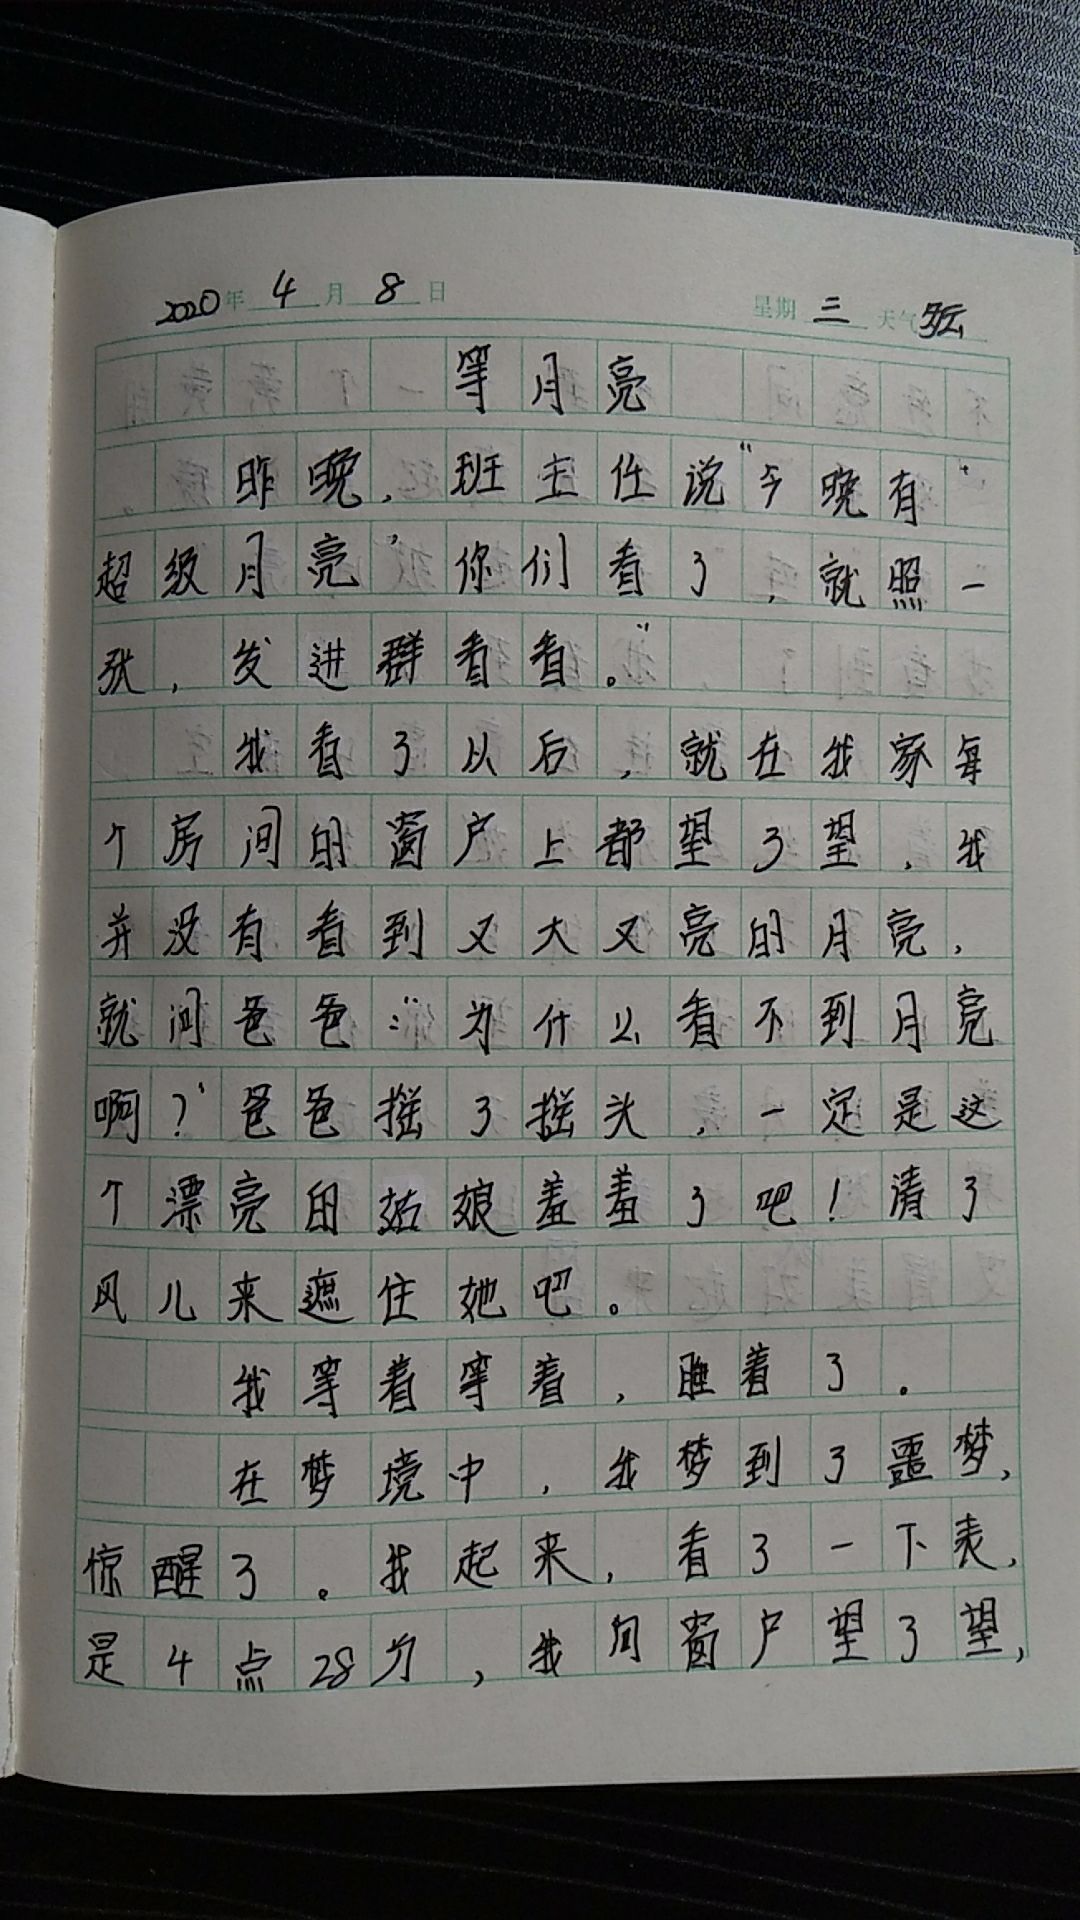 2020年 4月 8日 星期三 天气多云
等月亮
昨晚，班主任说“今晚有‘
超级月亮’你们看了，就照一
张，发进群看看。”
我看了以后，就在我家每
个房间的窗户上都望了望，我
并没有看到又大又亮的月亮，
就问爸爸：“为什么看不到月亮
啊？”爸爸摇了摇头，一定是这
个漂亮的姑娘羞羞了吧！请了
风儿来遮住她吧。
我等着等着，睡着了。
在梦境中，我梦到了噩梦，
惊醒了。我起来，看了一下表，
是4点28分，我向窗户望了望，